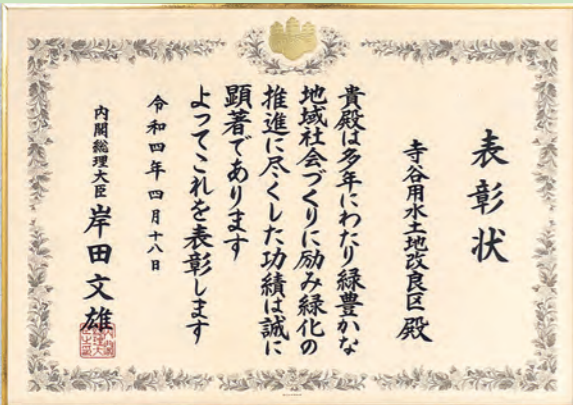 表彰状
寺谷用水土地改良区殿
貴殿は多年にわたり緑豊かな
地域社会づくりに励み緑化の
推進に尽くした功績は誠に
顕著であります
よってこれを表彰します
令和四年四月十八日
内閣総理大臣 岸田文雄